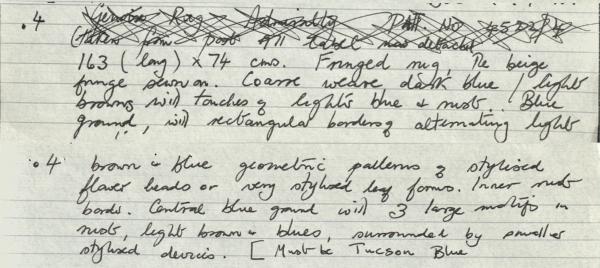 .4 Genuine Rug Admiralty Patt No
(taken from post
163 (long) x 74 cms. Fringed rug, The beige
fringe sewn on. Coarse weave dark blue / light
browns with touches of lights blue & rust. Blue
ground, with rectangular borders of alternating light
.4 brown & blue geometric patterns of stylised
flower heads or very stylised leaf forms. Inner rust
border. Central blue ground with 3 large motifs in
rust, light brown & blues, surrounded by smaller
stylised devices. [ Must be Tucson Blue